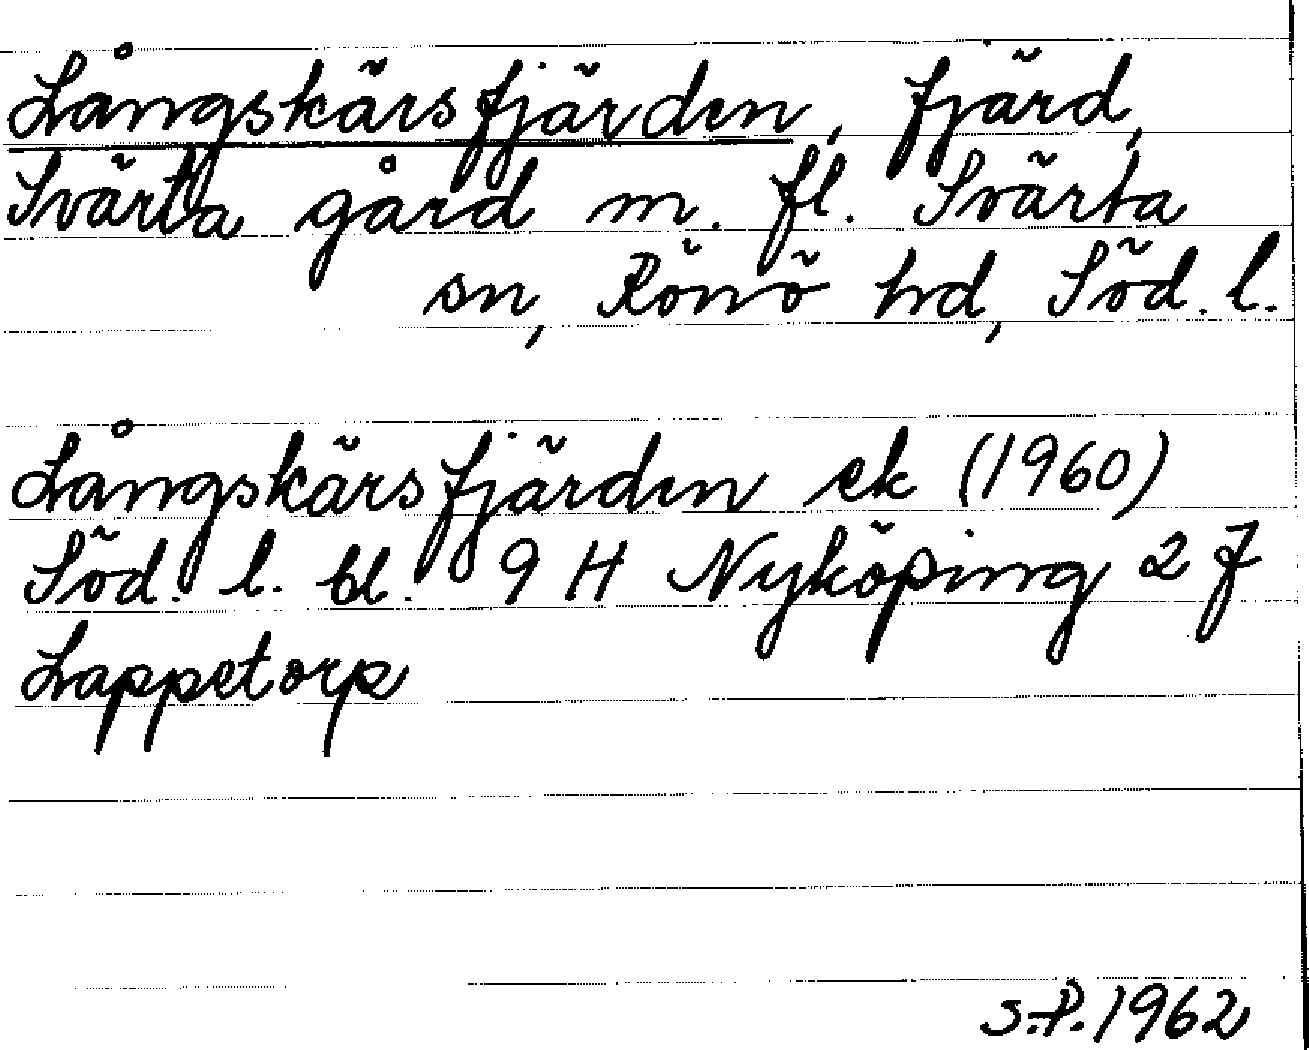 Långskärsfjärden, fjärd,
Svärta gård m. fl. Svärta
sn, Rönö hd, Söd. l.
Långskärsfjärden ek (1960)
Söd. l. bl. 9 H Nyköping 2 f
Lappetorp
S.P. 1962